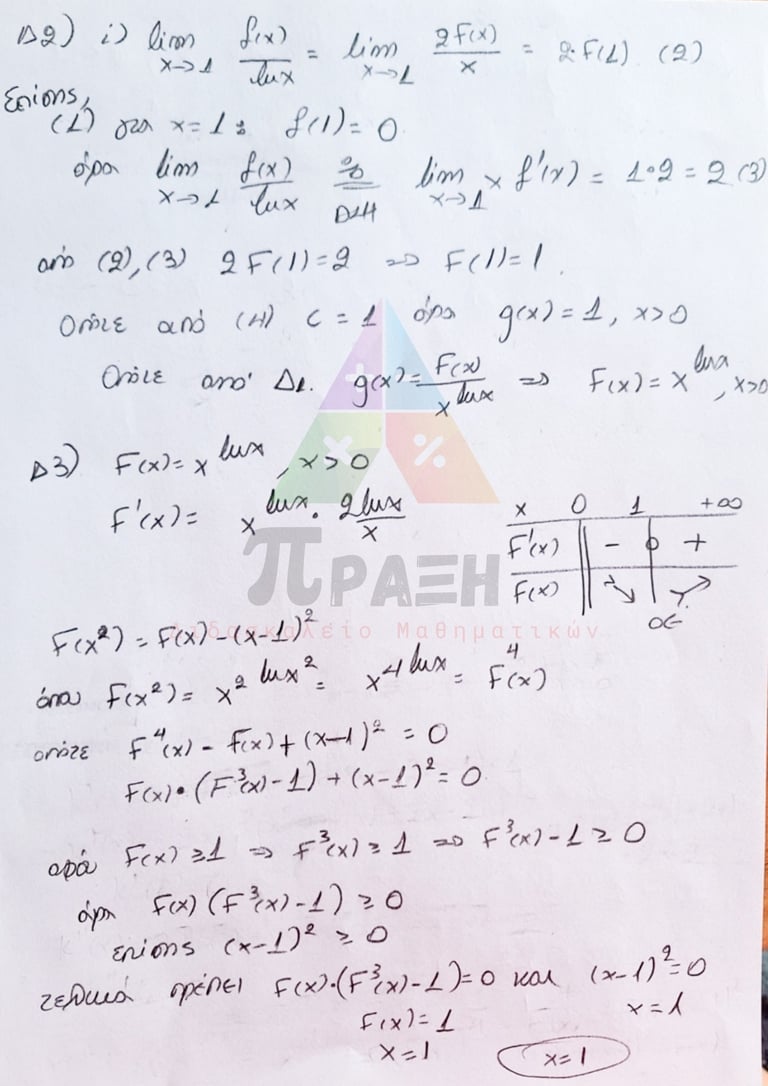 Δ2) i) lim x→1 f(x)/lnx = lim x→1 2F(x)/x = 2·F(1) (2)
Επίσης,
(1) για x=1: f(1)=0
άρα lim x→1 f(x)/lnx 0/0 = DLH lim x→1 x f'(x) = 1·2 = 2 (3)
από (2),(3) 2F(1)=2 ⇒ F(1)=1.
Οπότε από (4) c=1 άρα g(x)=1, x>0
Οπότε από Δ1. g(x)=F(x)/x^lnx ⇒ F(x)=x^lnx, x>0
Δ3) F(x)=x^lnx, x>0
F'(x)= x^lnx · 2lnx/x
x 0 1 +∞
F'(x) - 0 +
F(x) ↘ ↗
ΟΕ
ΠΡΑΞΗ
Διδασκαλείο Μαθηματικών
F(x²)=F(x)-(x-1)²
όπου F(x²)= x²^lnx² = x^4lnx = F⁴(x)
οπότε F⁴(x)-F(x)+(x-1)²=0
F(x)·(F³(x)-1)+(x-1)²=0
αφού F(x)≥1 ⇒ F³(x)≥1 ⇒ F³(x)-1≥0
άρα F(x)(F³(x)-1)≥0
επίσης (x-1)²≥0
τελικά πρέπει F(x)·(F³(x)-1)=0 και (x-1)²=0
F(x)=1 x=1
x=1 x=1